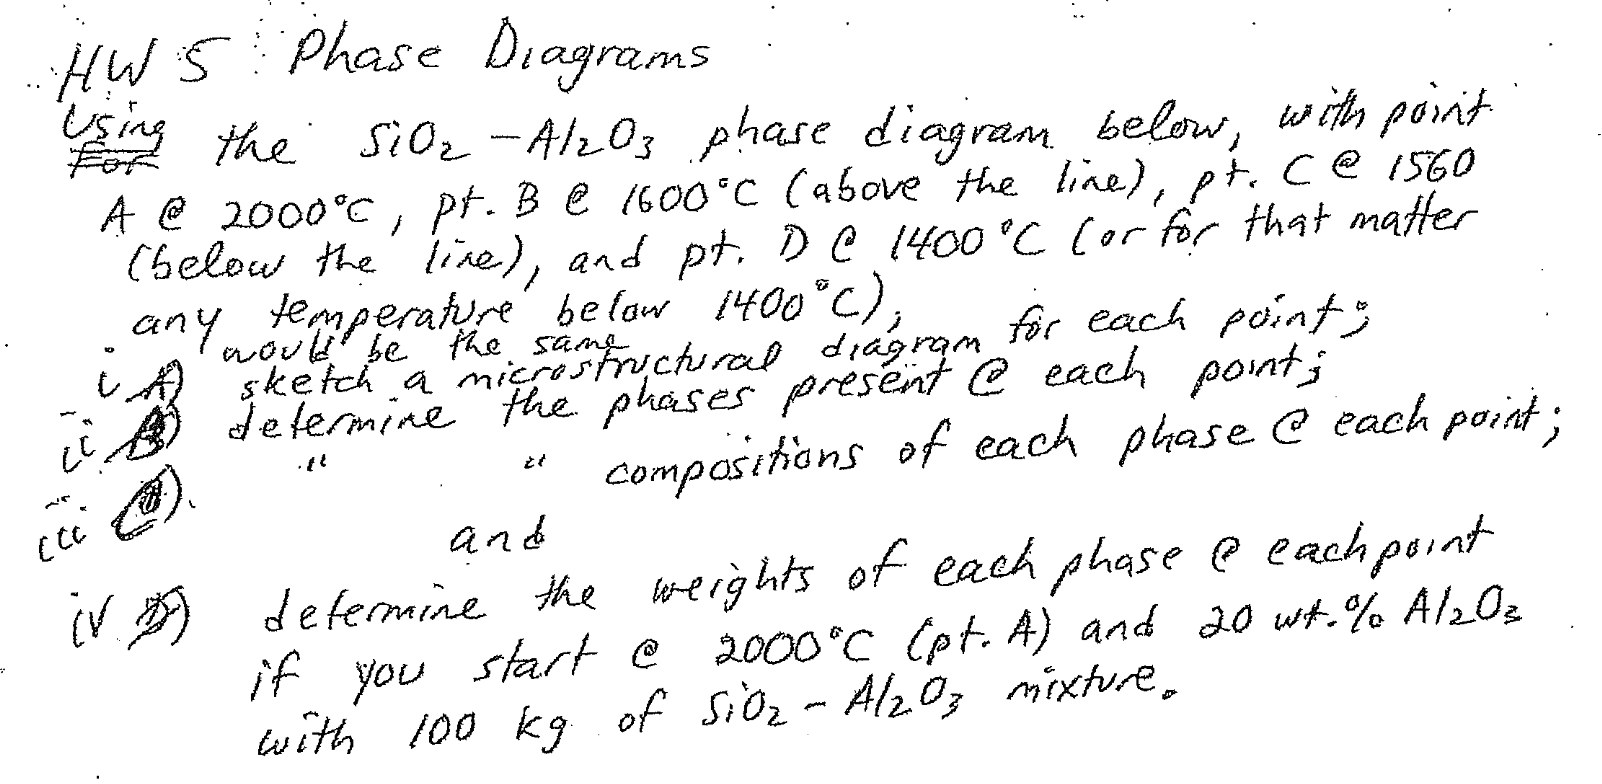 HW 5 Phase Diagrams
Using the SiO2 - Al2O3 phase diagram below, with point
A @ 2000°C, pt. B @ 1600°C (above the line), pt. C @ 1560
(below the line), and pt. D @ 1400°C (or for that matter
any temperature below 1400°C),
would be the same
i sketch a microstructural diagram for each point;
ii determine the phases present @ each point;
iii " " compositions of each phase @ each point;
and
iv determine the weights of each phase @ each point
if you start @ 2000°C (pt. A) and 20 wt.% Al2O3
with 100 kg of SiO2 - Al2O3 mixture.